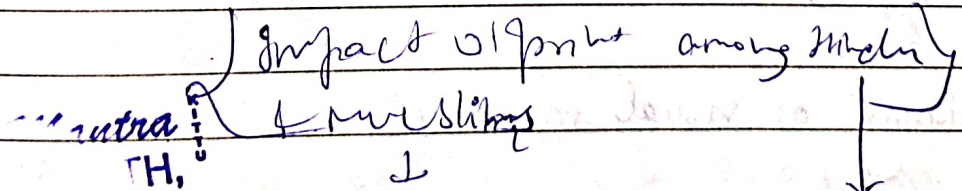 Impact of print among Hindu
& muslims